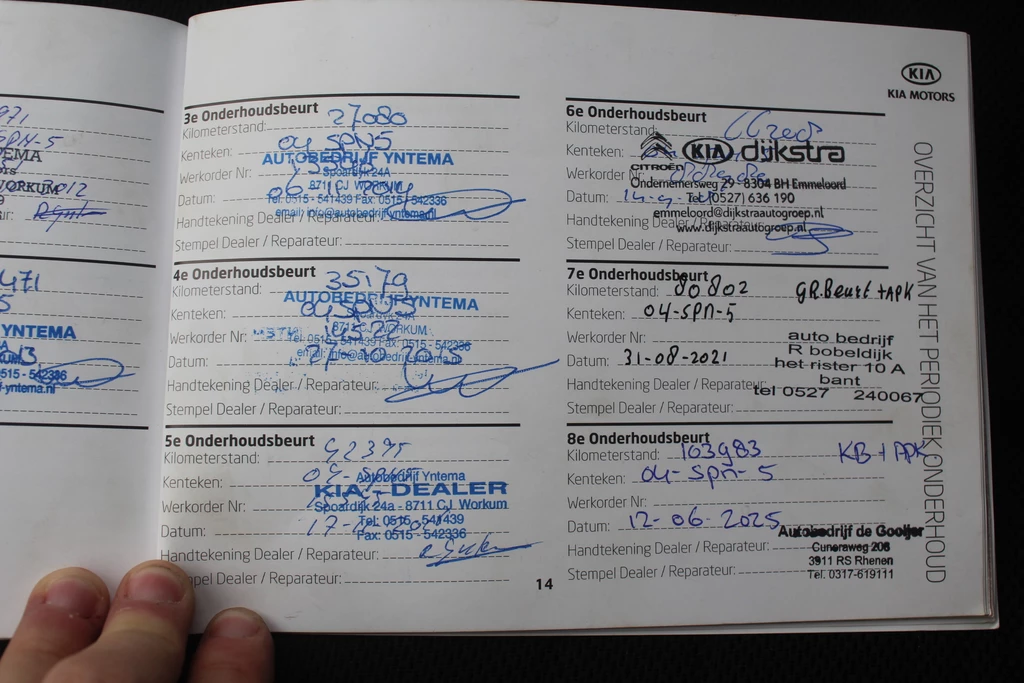 YNTEMA
515 - 542336
f-yntema.nl
3e Onderhoudsbeurt
Kilometerstand: 27080
Kenteken: 04 SPN5
AUTOBEDRIJF YNTEMA
Werkorder Nr:
Spoardyk 24A
8711 CJ WORKUM
Datum:
Tel: 0515 - 541439 Fax: 0515 - 542336
email: info@autobedrijfyntema.nl
Handtekening Dealer / Reparateur:
Stempel Dealer / Reparateur:
4e Onderhoudsbeurt
Kilometerstand: 35179
AUTOBEDRIJF YNTEMA
Kenteken:
Spoardyk 24A
8711 CJ WORKUM
Werkorder Nr:
Tel: 0515 - 541439 Fax: 0515 - 542336
email: info@autobedrijfyntema.nl
Datum:
Handtekening Dealer / Reparateur:
Stempel Dealer / Reparateur:
5e Onderhoudsbeurt
Kilometerstand:
Kenteken:
Autobedrijf Yntema
KIA - DEALER
Werkorder Nr:
Spoardijk 24a - 8711 CJ Workum
Tel: 0515 - 541439
Datum:
Fax: 0515 - 542336
Handtekening Dealer / Reparateur:
Stempel Dealer / Reparateur:
14
KIA
KIA MOTORS
6e Onderhoudsbeurt
Kilometerstand:
Kenteken:
CITROËN KIA dijkstra
Werkorder Nr:
Ondernemersweg 29 - 8304 BH Emmeloord
Datum:
Tel. (0527) 636 190
emmeloord@dijkstraautogroep.nl
Handtekening Dealer / Reparateur:
www.dijkstraautogroep.nl
Stempel Dealer / Reparateur:
7e Onderhoudsbeurt
Kilometerstand: 80802 GR.Beurt + APK
Kenteken: 04-SPN-5
Werkorder Nr:
auto bedrijf
R bobeldijk
Datum: 31-08-2021
het rister 10 A
bant
Handtekening Dealer / Reparateur:
tel 0527 240067
Stempel Dealer / Reparateur:
8e Onderhoudsbeurt
Kilometerstand: 103983 KB + APK
Kenteken: 04-SPN-5
Werkorder Nr:
Datum: 12-06-2025
Autobedrijf de Gooijer
Cuneraweg 206
Handtekening Dealer / Reparateur:
3911 RS Rhenen
Tel. 0317-619111
Stempel Dealer / Reparateur:
OVERZICHT VAN HET PERIODIEK ONDERHOUD